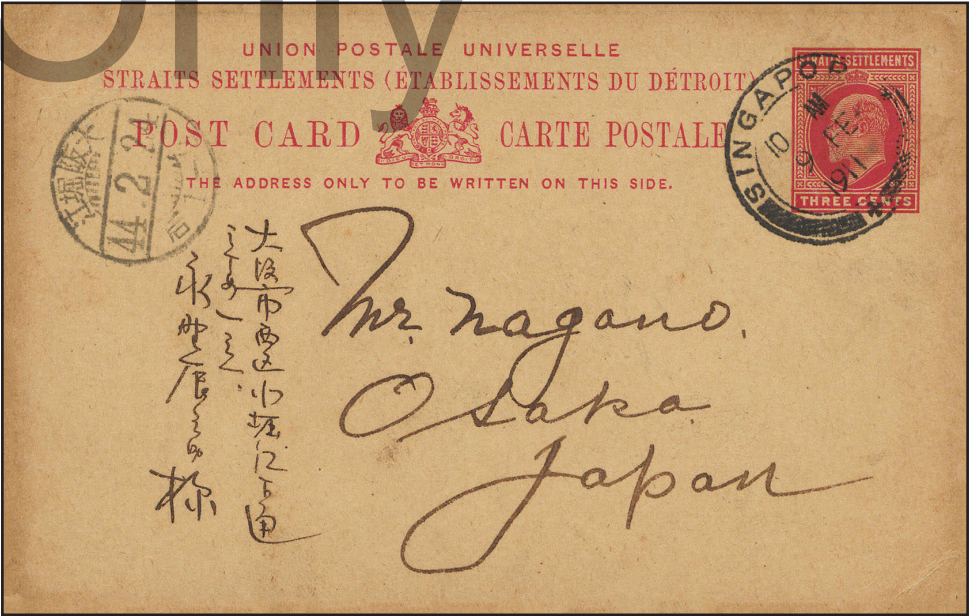 Only
UNION POSTALE UNIVERSELLE
STRAITS SETTLEMENTS (ÉTABLISSEMENTS DU DÉTROIT)
POST CARD CARTE POSTALE
THE ADDRESS ONLY TO BE WRITTEN ON THIS SIDE.
STRAITS SETTLEMENTS
THREE CENTS
SINGAPO
10
9 FE
1911
大阪江堀
44.2.24
Mr. Nagano.
Osaka
Japan
大阪市西区小堀江下通
永野
様